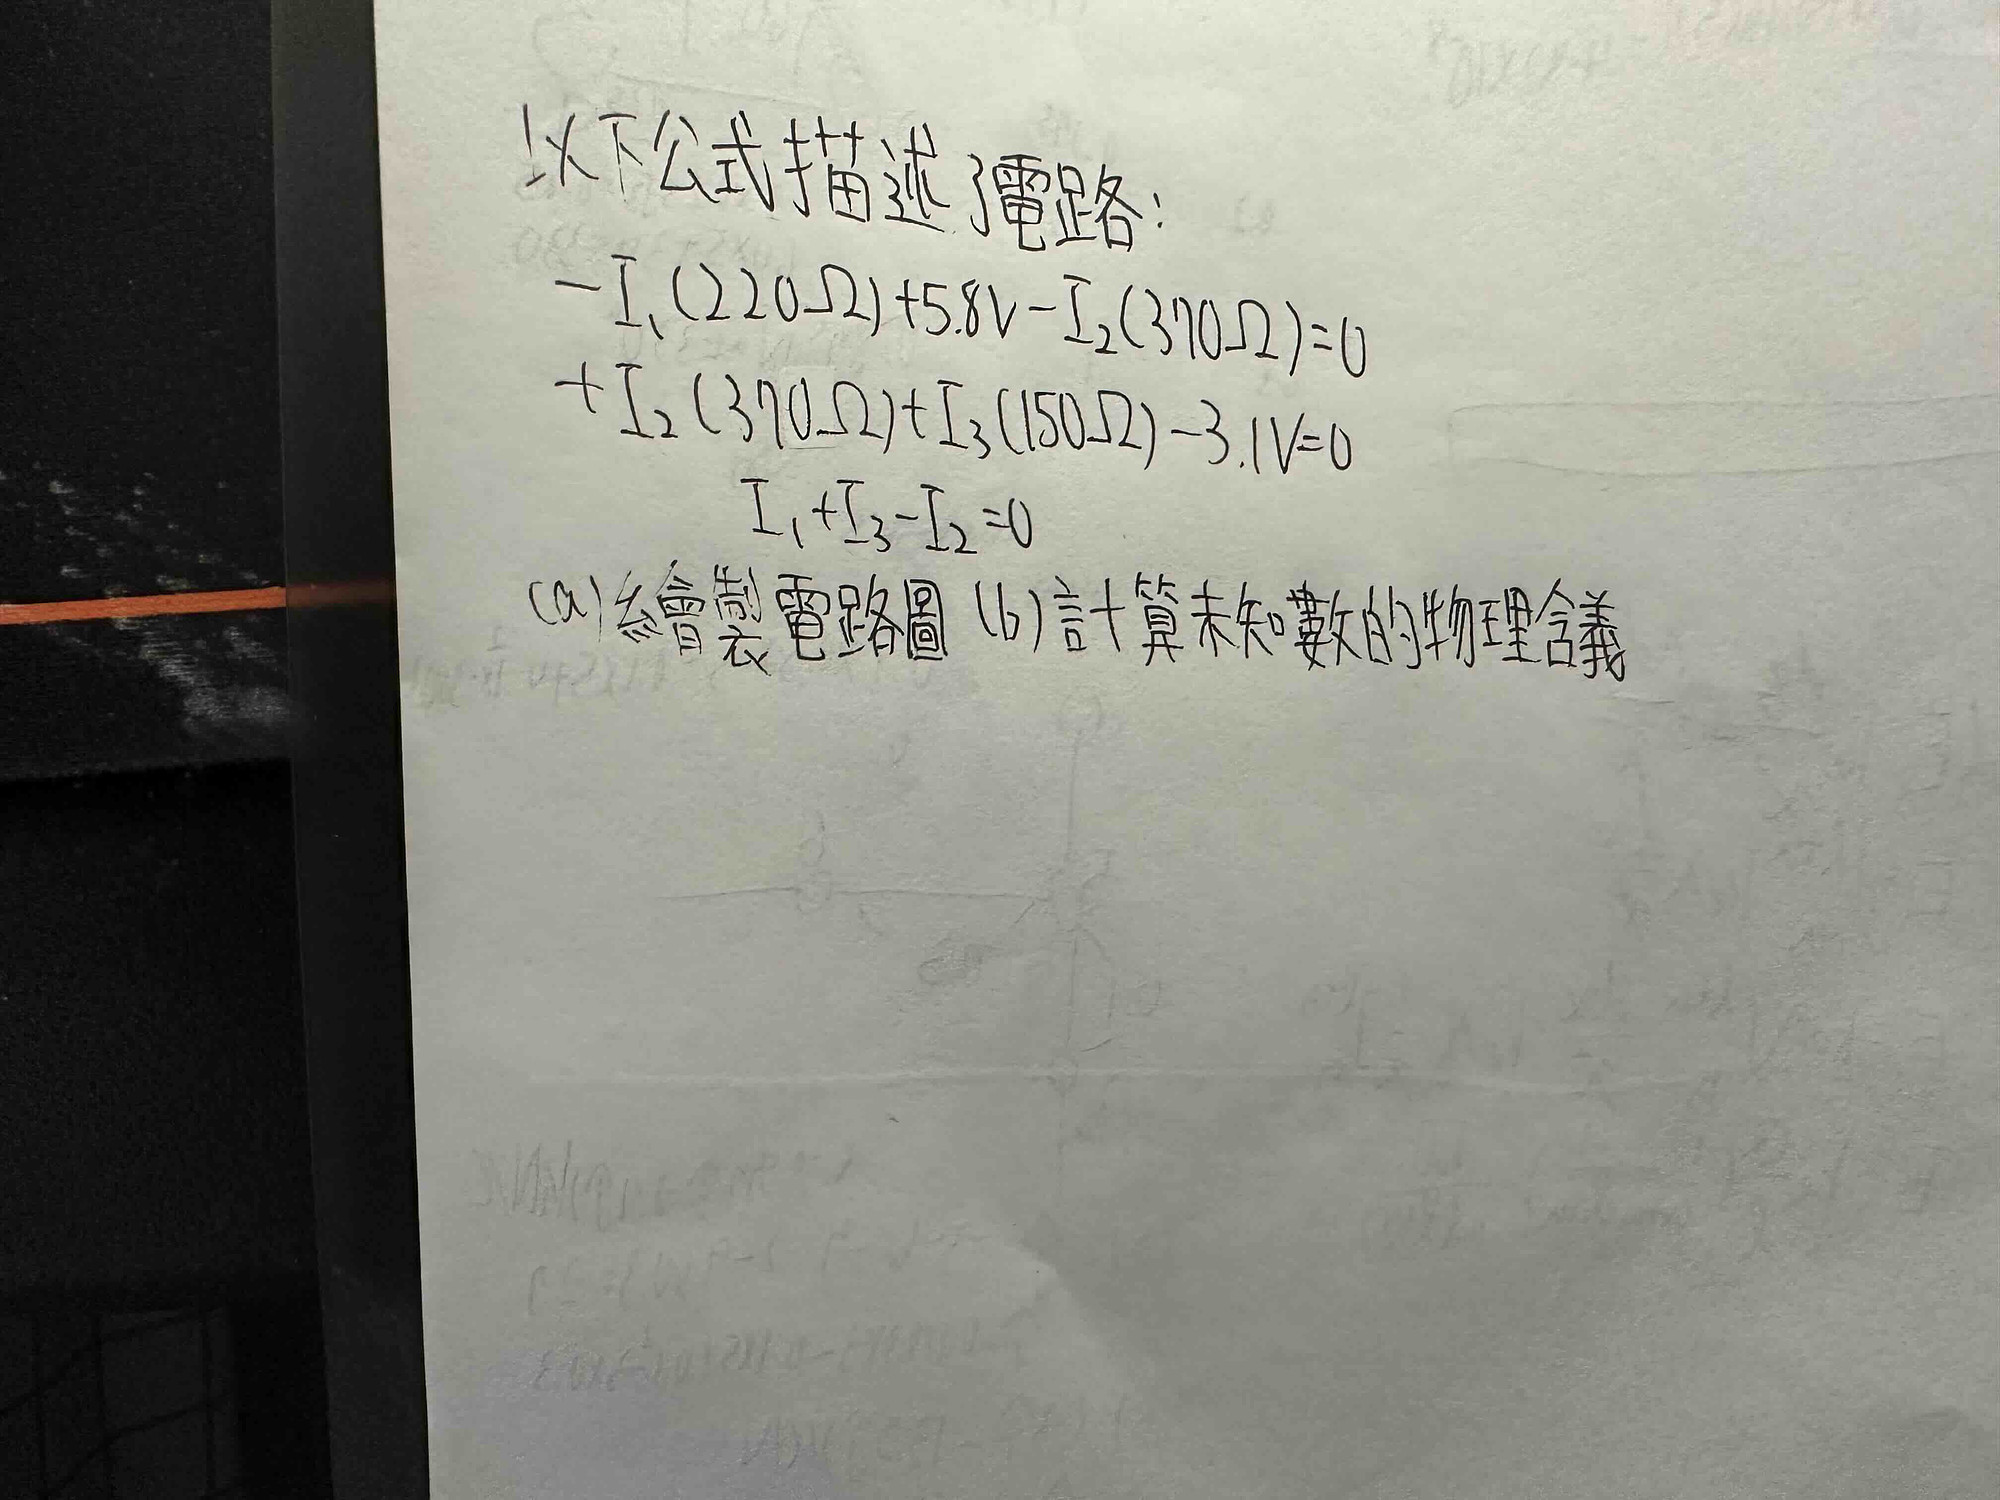 以下公式描述了電路:
-I₁(220Ω)+5.8V-I₂(370Ω)=0
+I₂(370Ω)+I₃(150Ω)-3.1V=0
I₁+I₃-I₂=0
(a)繪製電路圖 (b)計算未知數的物理含義